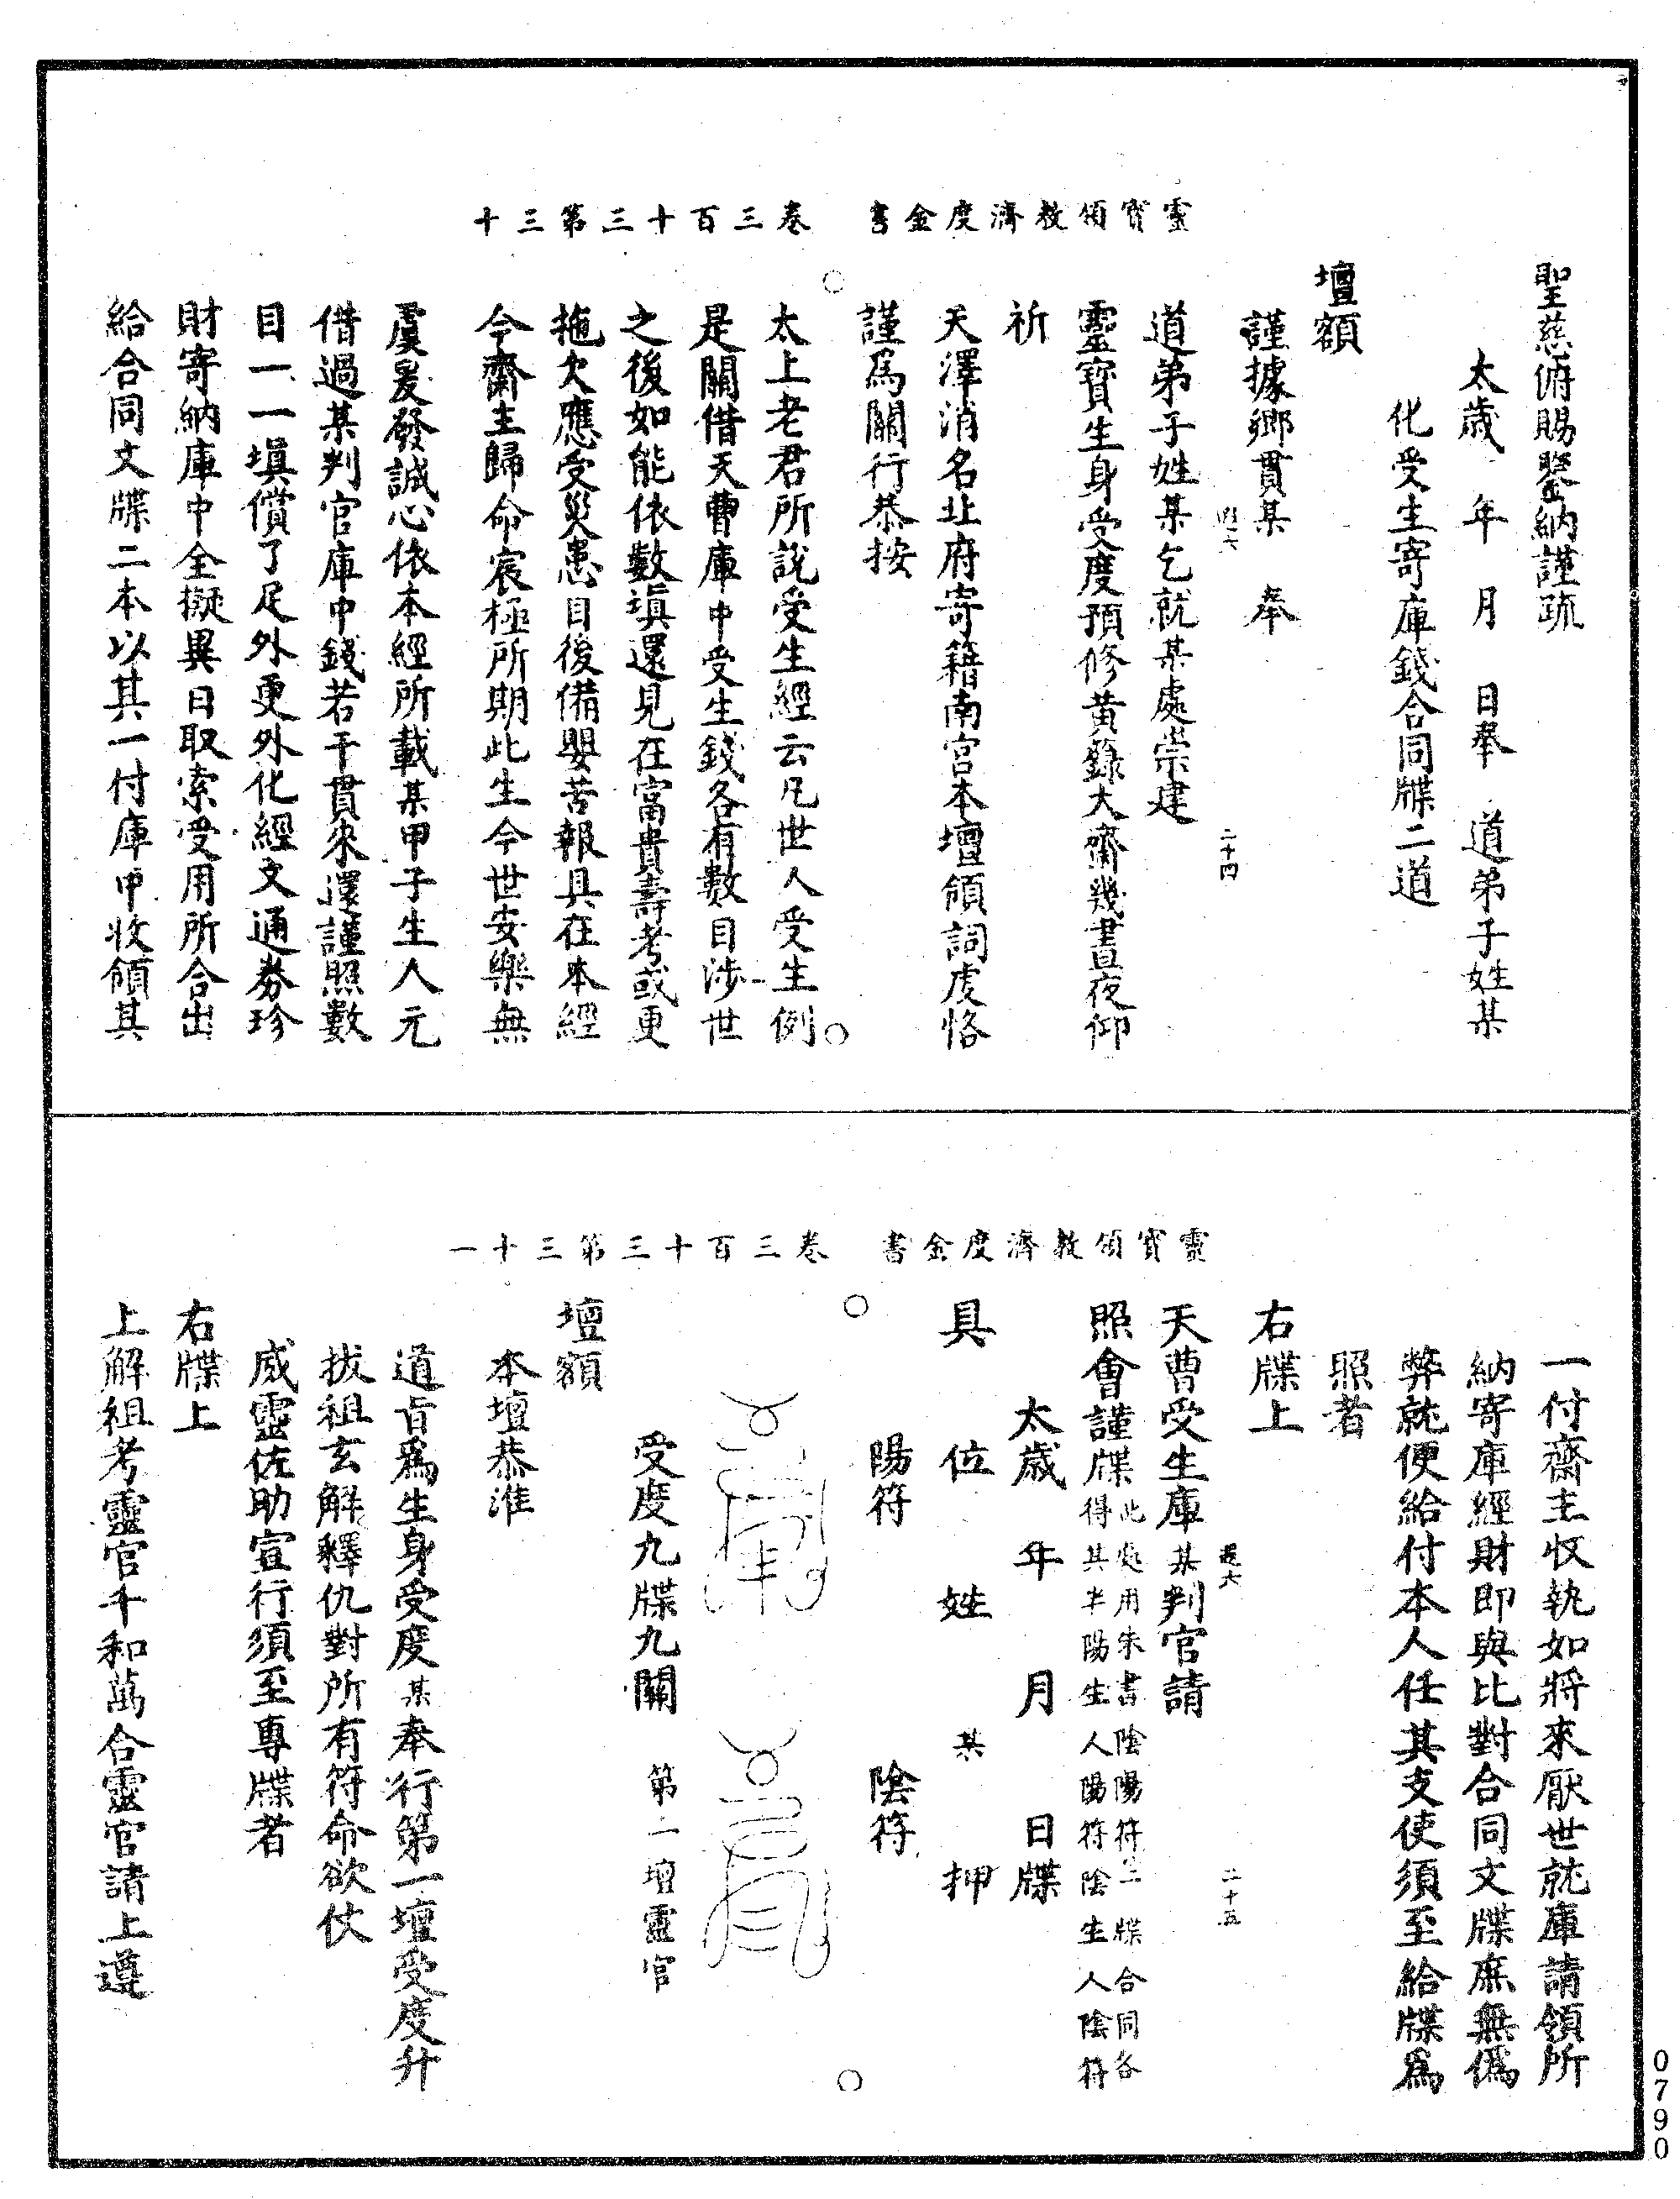 靈寶領教濟度金書　卷三百十三第三十
聖慈俯賜鑒納謹疏
太歲　年　月　日奉　道弟子姓某
化受生寄庫錢合同牒二道
壇額
謹據鄉貫某　奉
二十四
道弟子姓某乞就某處崇建
靈寶生身受度預修黃籙大齋幾晝夜仰
祈
天澤消名北府寄籍南宮本壇領詞虔恪
謹為關行恭按
太上老君所說受生經云凡世人受生例
是關借天曹庫中受生錢各有數目涉世
之後如能依數填還見在富貴壽考或更
拖欠應受災患目後備嬰苦報具在本經
今齋主歸命宸極所期此生今世安樂無
虞爰發誠心依本經所載某甲子生人元
借過某判官庫中錢若干貫來還謹照數
目一一填償了足外更外化經文通券珍
財寄納庫中全擬異日取索受用所合出
給合同文牒二本以其一付庫中收領其
靈寶領教濟度金書　卷三百十三第三十一
一付齋主收執如將來厭世就庫請領所
納寄庫經財即與比對合同文牒庶無偽
弊就便給付本人任其支使須至給牒為
照者
右牒上
二十五
天曹受生庫某判官請
照會謹牒此處用朱書陰陽符二牒合同各
得其半陽生人陽符陰生人陰符
太歲　年　月　日牒
具　位　姓　某　押
陽符　陰符
受度九牒九關　第一壇靈官
壇額
本壇恭准
道旨為生身受度某奉行第一壇受度升
拔祖玄解釋仇對所有符命欲仗
威靈佐助宣行須至專牒者
右牒上
上解祖考靈官千和萬合靈官請上遵
0790